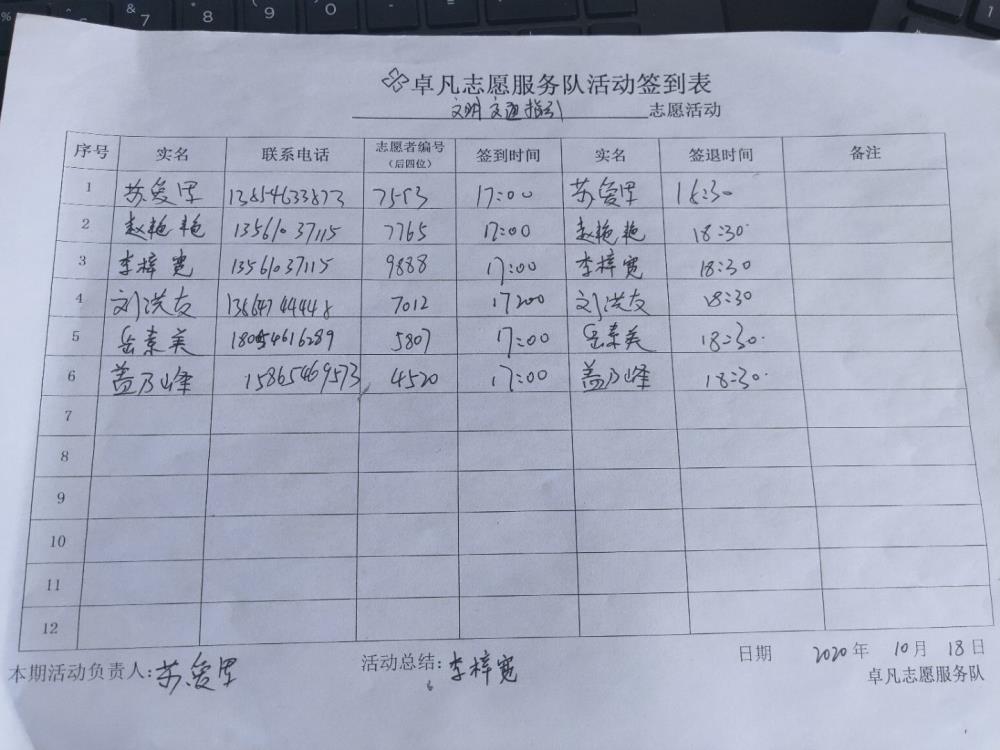 卓凡志愿服务队活动签到表
文明交通指引 志愿活动
序号 实名 联系电话 志愿者编号（后四位） 签到时间 实名 签退时间 备注
1 苏爱军 13854633873 7553 17:00 苏爱军 18:30
2 赵艳艳 13561037115 7765 17:00 赵艳艳 18:30
3 李梓宽 13561037115 9888 17:00 李梓宽 18:30
4 刘洪友 13864744448 7012 17:00 刘洪友 18:30
5 岳素美 18054616289 5807 17:00 岳素美 18:30
6 盖乃峰 15865469573 4520 17:00 盖乃峰 18:30
7
8
9
10
11
12
本期活动负责人:苏爱军 活动总结:李梓宽 日期 2020年 10月 18日
卓凡志愿服务队